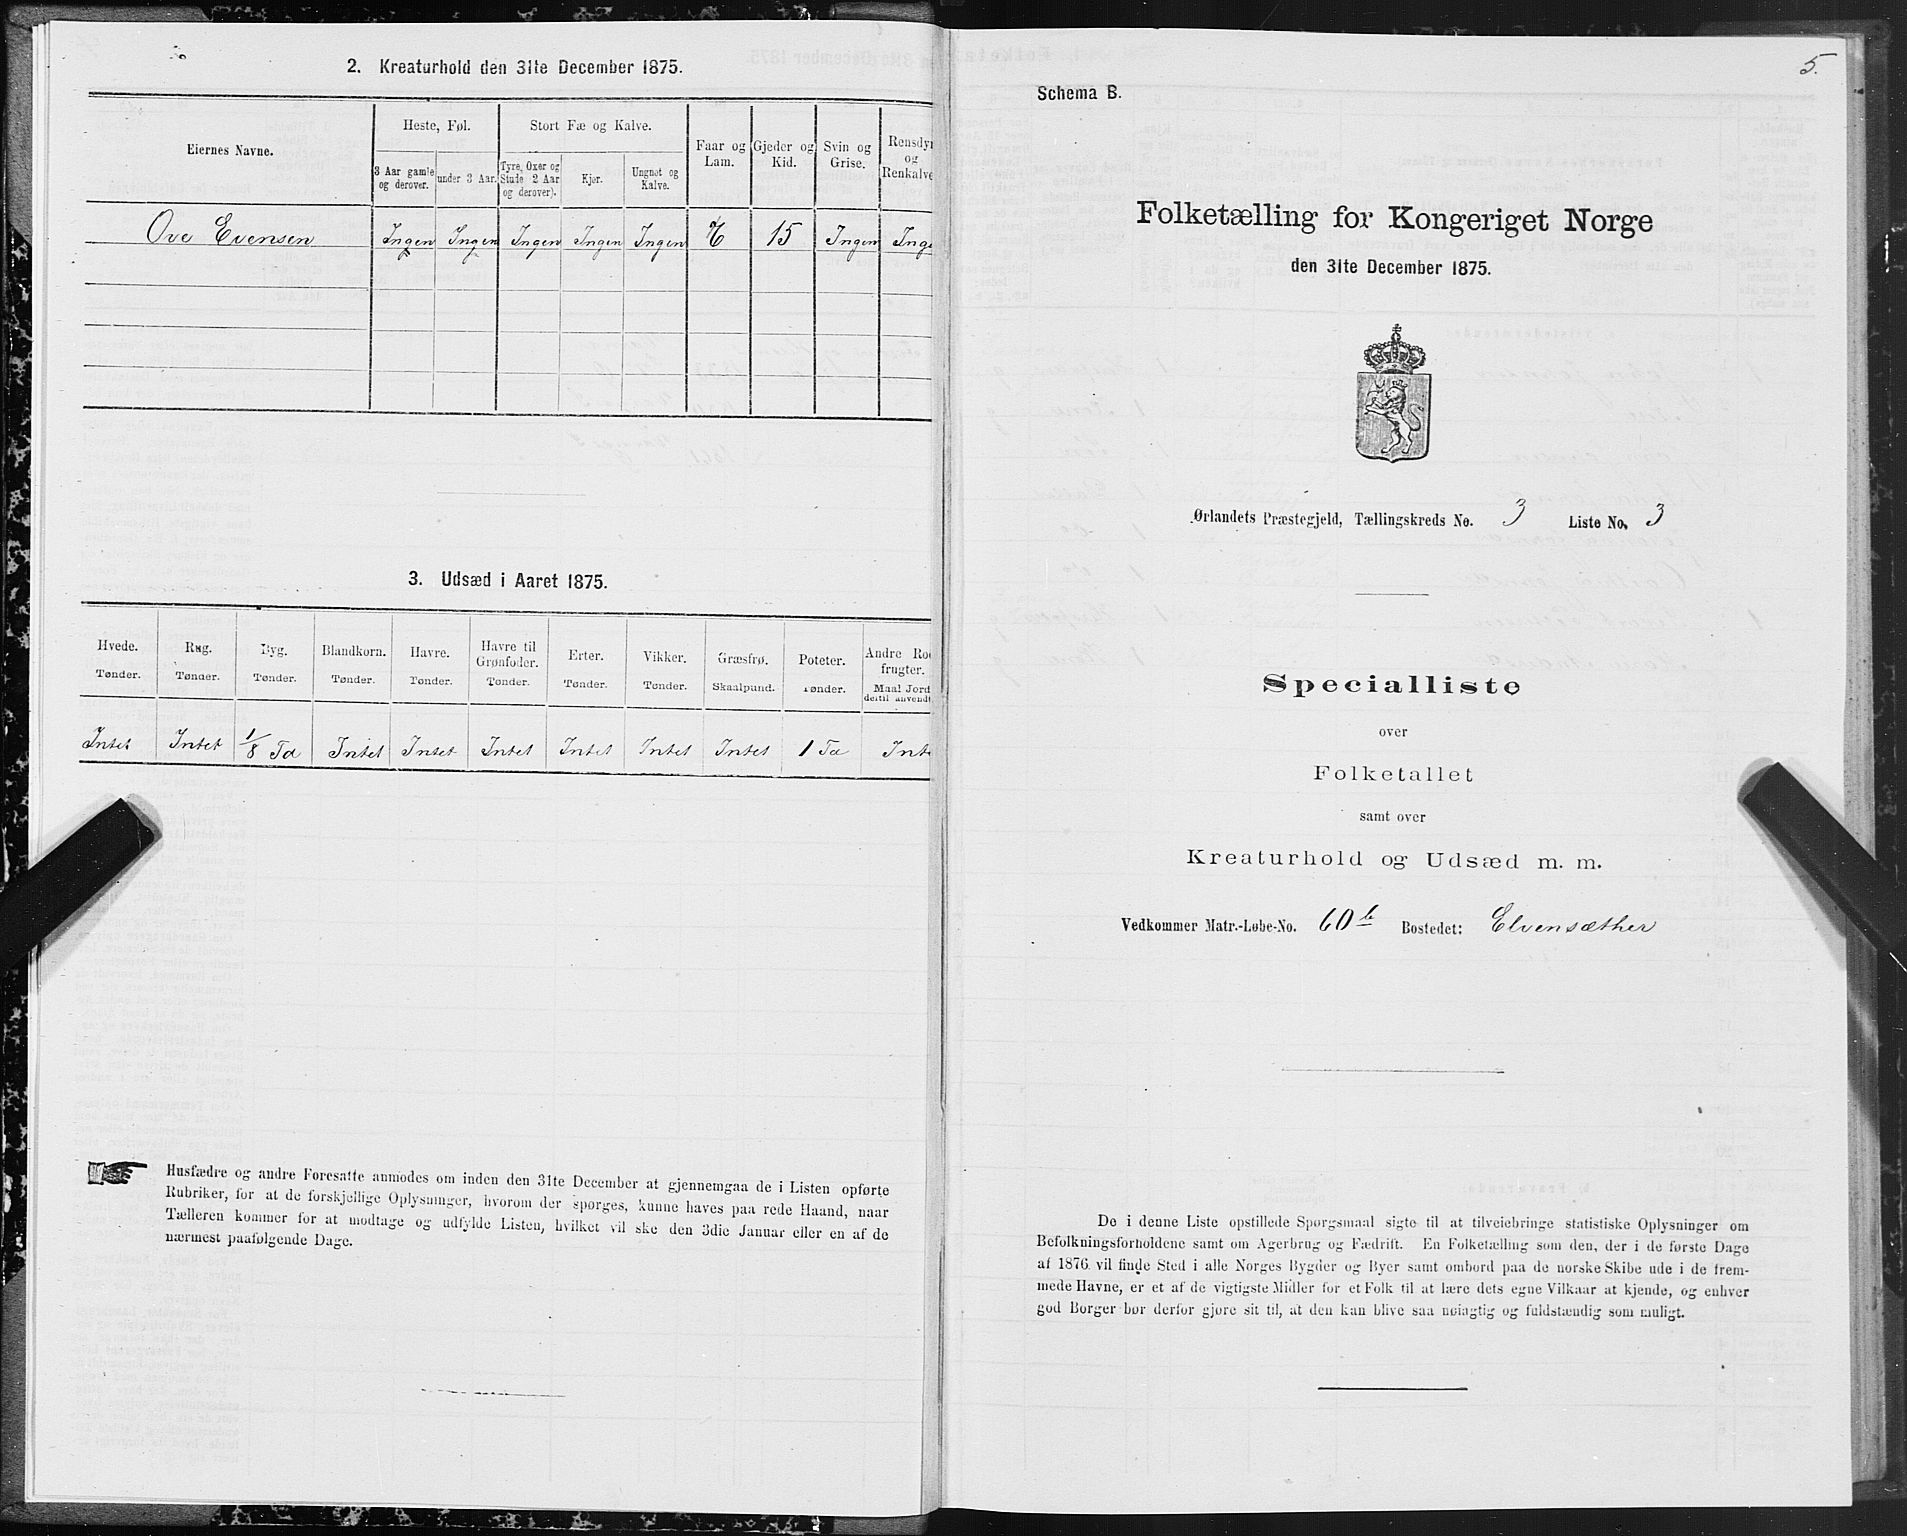 2. Kreaturhold den 31te December 1875.
Eiernes Navne.
Heste, Føl.
Stort Fæ og Kalve.
Faar og Lam.
Gjeder og Kid.
Svin og Grise.
Rensdyr og Renkalve
3 Aar gamle og derover.
under 3 Aar.
Tyre, Oxer og Stude 2 Aar og derover).
Kjør.
Ungnøt og Kalve.
Ove Evensen Ingen Ingen Ingen Ingen Ingen 15 Ingen Inge
3. Udsæd i Aaret 1875.
Hvede. Rug. Byg. Blandkorn. Havre. Havre til Grønfoder. Erter. Vikker. Græsfrø. Poteter. Andre Rod frugter.
Tønder. Tønder. Tønder. Tønder. Tønder. Tønder. Tønder. Tønder. Skaalpund. Tønder. Maal Jord dertil anvendt
Intet Intet 1/8 Td Intet Intet Intet Intet Intet Intet 1 Td Inte
Husfædre og andre Foresatte anmodes om inden den 31te December at gjennemgaa de i Listen opførte
Rubriker, for at de forskjellige Oplysninger, hvorom der spørges, kunne haves paa rede Haand, naar
Tælleren kommer for at modtage og udfylde Listen, hvilket vil ske den 3die Januar eller en af de
nærmest paafølgende Dage.
5.
Schema B.
Folketælling for Kongeriget Norge
den 31te December 1875.
Ørlandets Præstegjeld, Tællingskreds No. 3 Liste No. 3
Specialliste
over
Folketallet
samt over
Kreaturhold og Udsæd m. m.
Vedkommer Matr.-Løbe-No. 60b Bostedet: Elvensæther
De i denne Liste opstillede Spørgsmaal sigte til at tilveiebringe statistiske Oplysninger om
Befolkningsforholdene samt om Agerbrug og Fædrift. En Folketælling som den, der i de første Dage
af 1876 vil finde Sted i alle Norges Bygder og Byer samt ombord paa de norske Skibe ude i de frem-
mede Havne, er et af de vigtigste Midler for et Folk til at lære dets egne Vilkaar at kjende, og enhver
god Borger bør derfor gjøre sit til, at den kan blive saa nøiagtig og fuldstændig som muligt.